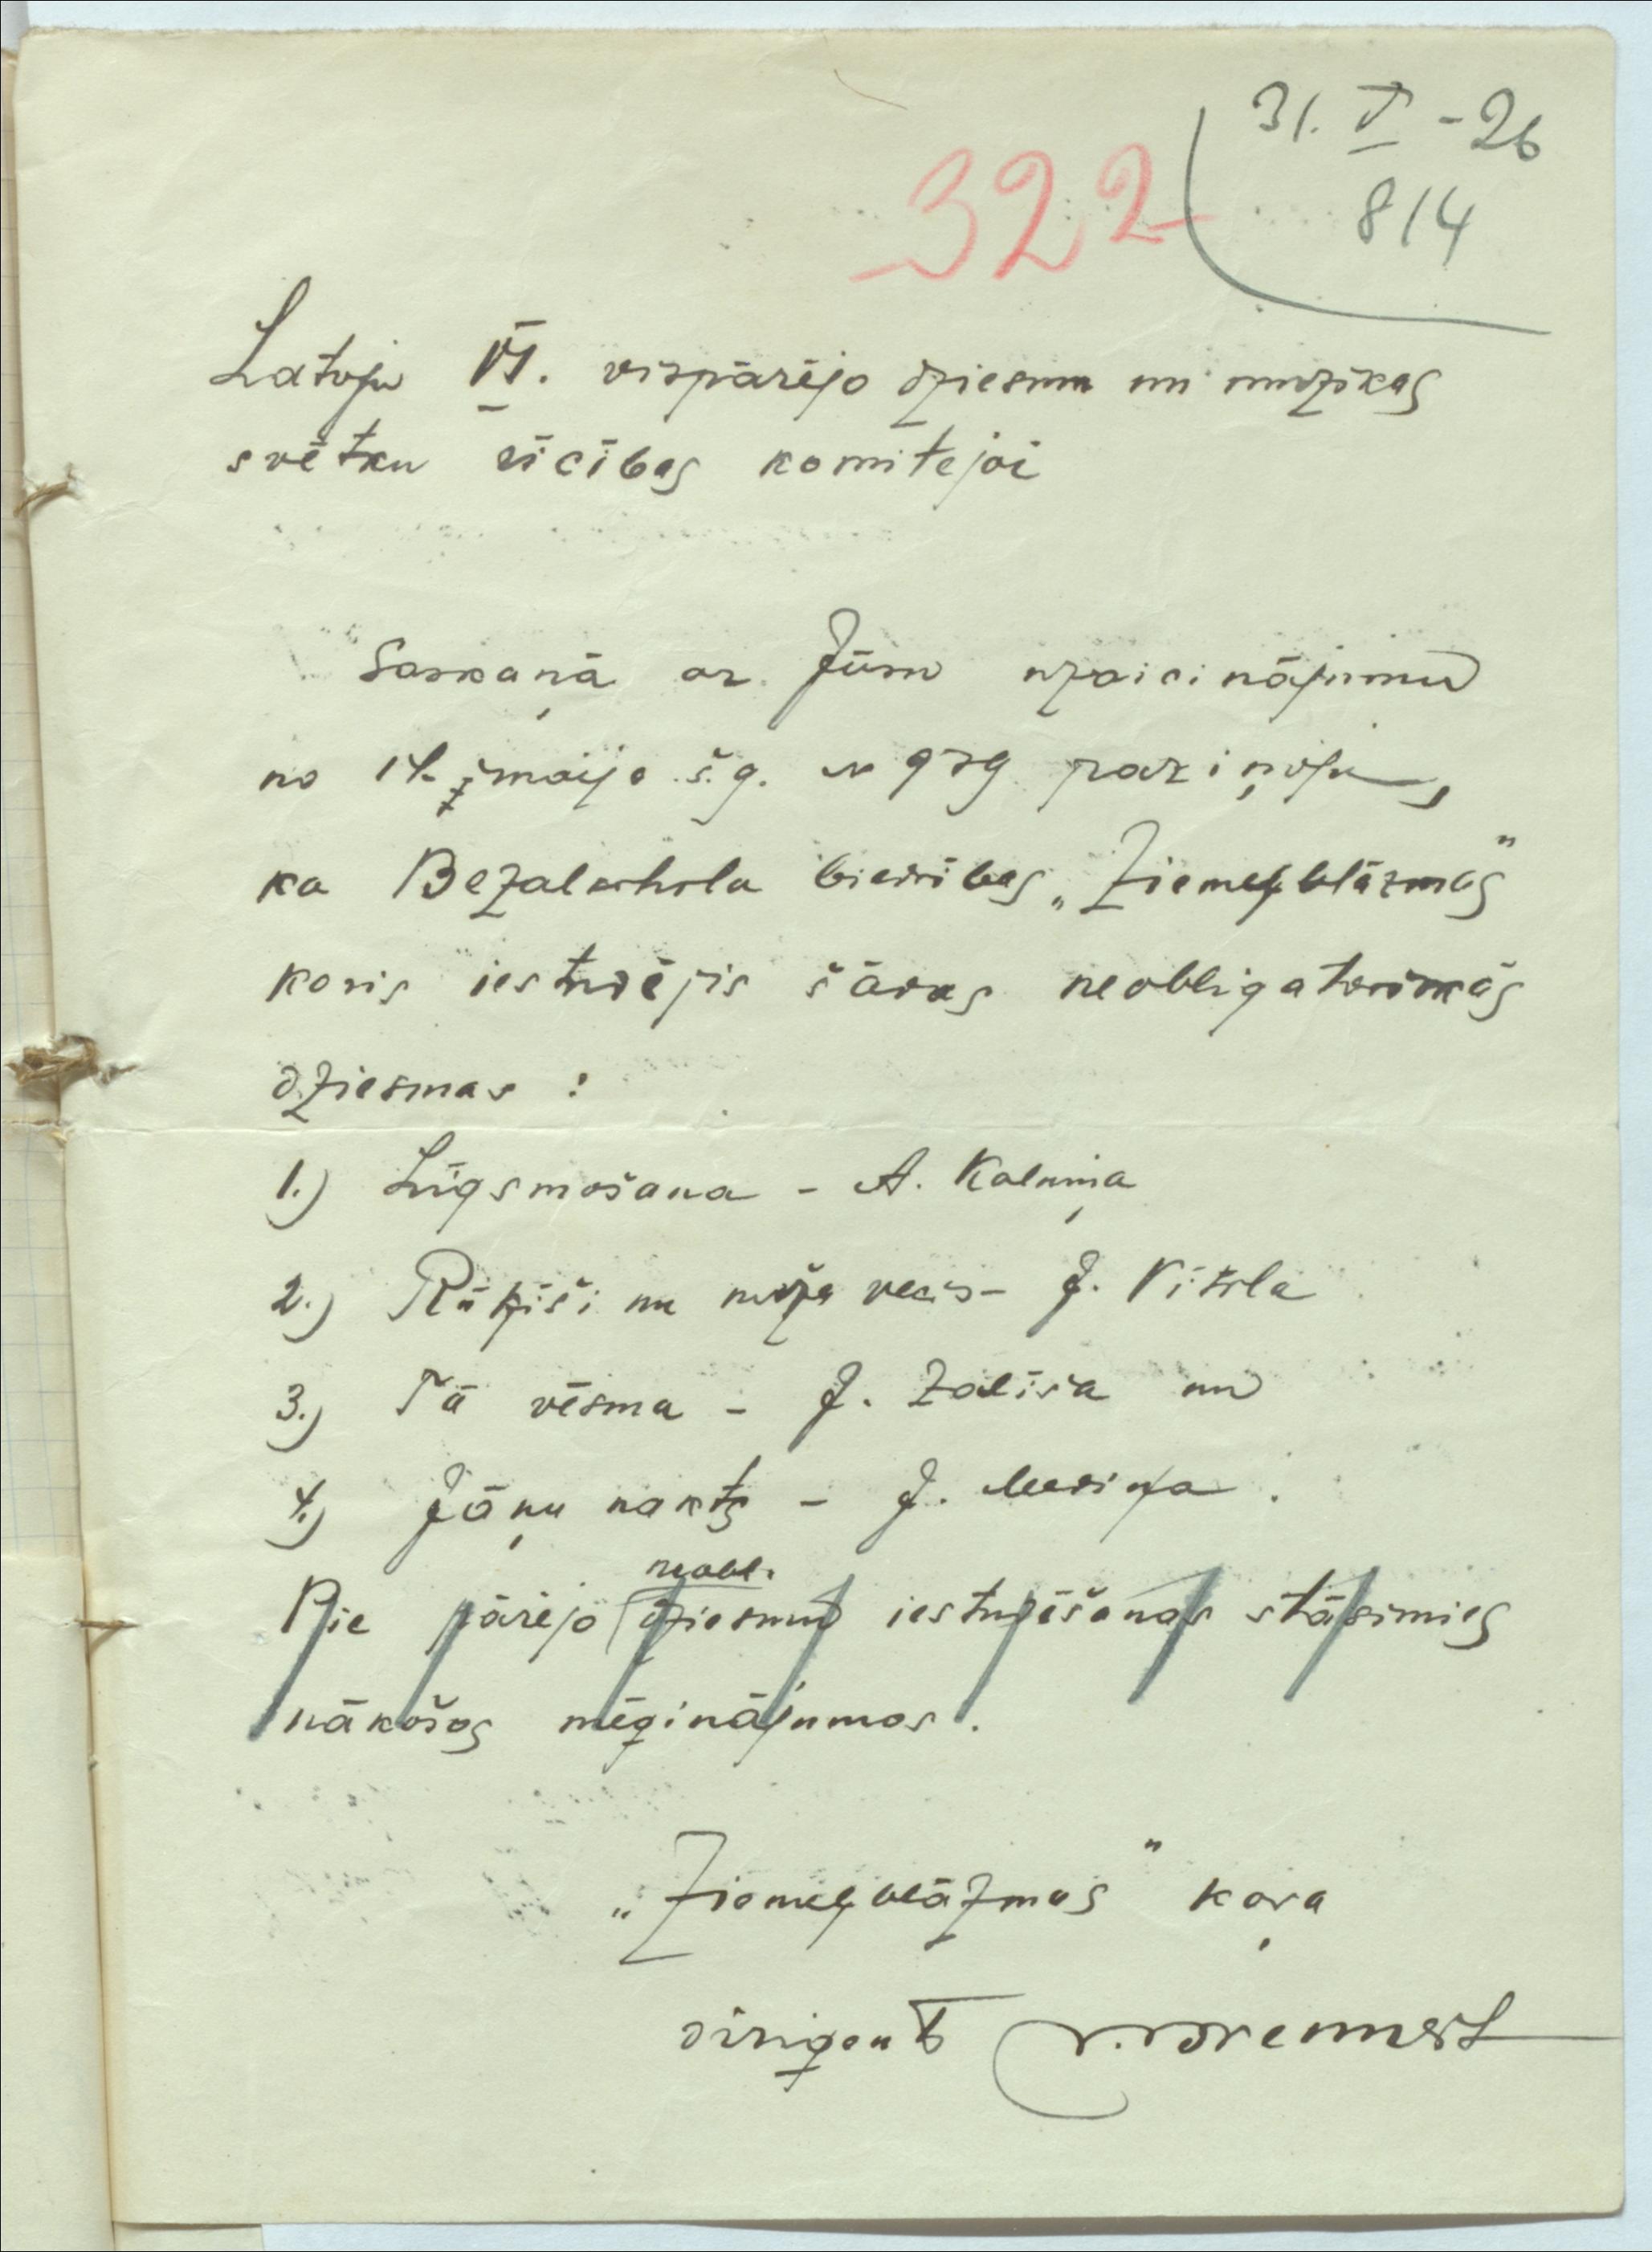 31. V - 26
322 814
Latvju VI. vispārējo dziesmu un mūzikas
svētku rīcības komitejai
Saskaņā ar Jūsu uzaicinājumu
no 14. maija š.g. № paziņoju,
ka Bezalkohola biedrības „Ziemeļblāzmas"
koris iestudējis šādas neobligatoriskās
dziesmas :
1.) Līgsmošana - A. Kalniņa
2.) Rūķīši un meža vecis - J. Vītola
3.) Tā vēsma - J. Zālīša un
4.) Jāņu nakts - J. Mediņa.
neobl.
Pie pārējo dziesmu iestudēšanas stāsimies
nākošos mēģinājumos.
„Ziemeļblāzmas" koŗa
diriģents